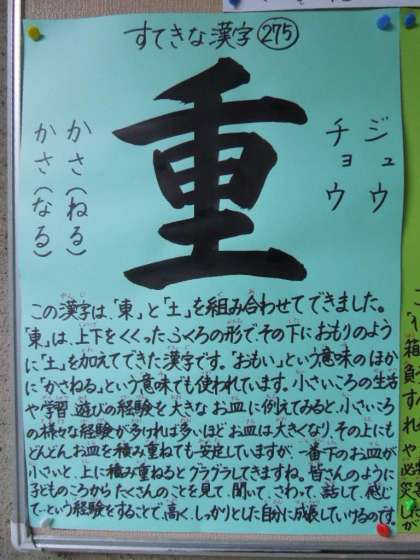 すてきな漢字 275
重
ジュウ
チョウ
かさ(ねる)
かさ(なる)
この漢字は、「東」と「土」を組み合わせてできました。
「東」は、上下をくくったふくろの形で、その下におもりのよう
に「土」を加えてできた漢字です。「おもい」という意味のほか
に「かさねる」という意味でも使われています。小さいころの生活
や学習、遊びの経験を大きなお皿に例えてみると、小さいころ
の様々な経験が多ければ多いほどお皿は大きくなり、その上にも
どんどんお皿を積み重ねても安定していますが、一番下のお皿が
小さいと、上に積み重ねるとグラグラしてきますね。皆さんのように
子どものころからたくさんのことを見て、聞いて、さわって、話して、感じ
て…という経験をすることで、高く、しっかりとした自分に成長していけるのです。